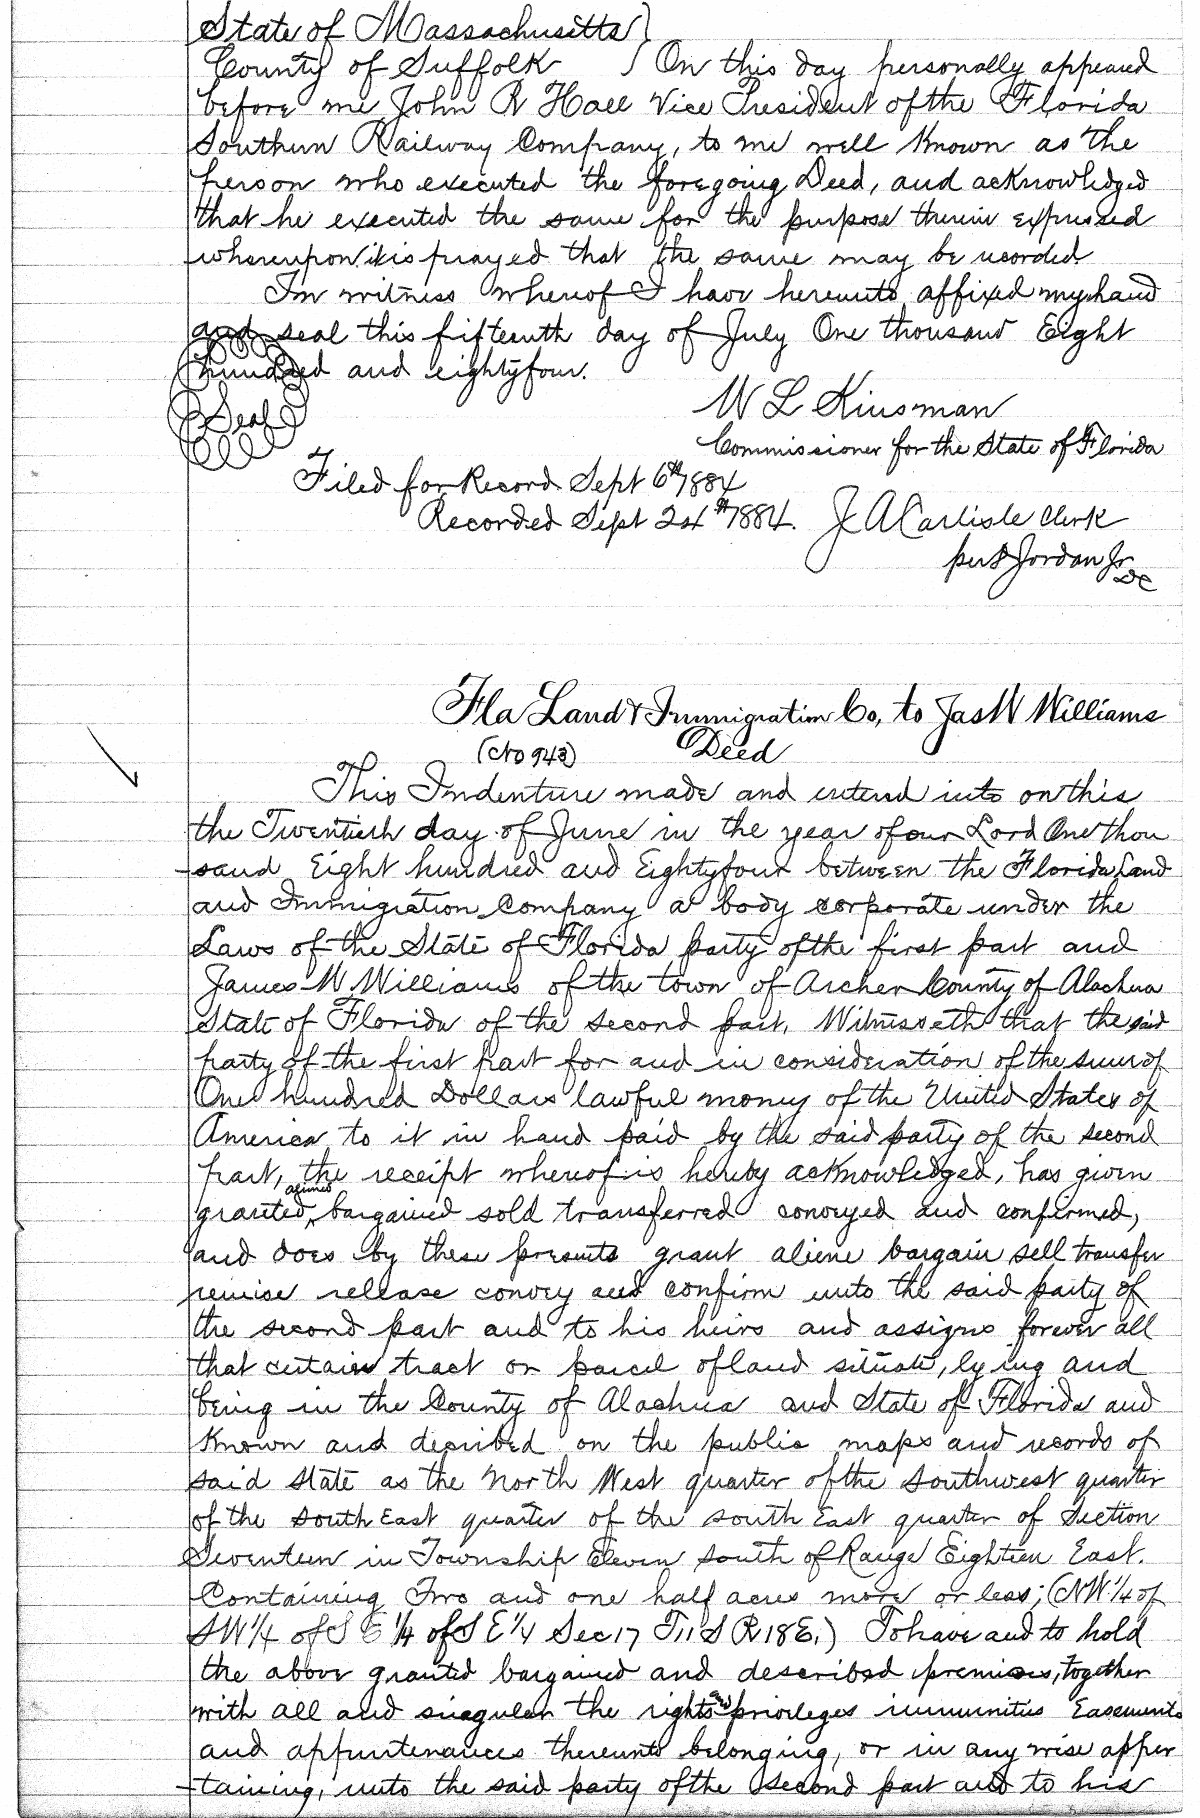 State of Massachusetts }
County of Suffolk } On this day personally appeared
before me John R Hall Vice President of the Florida
Southern Railway Company, to me well known as the
person who executed the foregoing Deed, and acknowledged
that he executed the same for the purpose therein expressed
whereupon it is prayed that the same may be recorded
In witness whereof I have hereunto affixed my hand
and seal this fifteenth day of July One thousand Eight
hundred and eightyfour.
Seal
W L Kinsman
Commissioner for the State of Florida
Filed for Record Sept 6th 1884
Recorded Sept 24th 1884. J A Carlisle Clerk
per Jordan Jr
DC
Fla Land & Immigration Co, to Jas W Williams
(No 943) Deed
This Indenture made and entered into on this
the Twentieth day of June in the year of our Lord One thou
sand Eight hundred and Eightyfour between the Florida Land
and Immigration Company a body corporate under the
Laws of the State of Florida party of the first part and
James W Williams of the town of Archer County of Alachua
State of Florida of the second part, Witnesseth that the said
party of the first part for and in consideration of the sum of
One hundred Dollars lawful money of the United States of
America to it in hand paid by the said party of the second
part, the receipt whereof is hereby acknowledged, has given
granted, aliened bargained sold transferred conveyed and confirmed,
and does by these presents grant aliene bargain sell transfer
remise release convey and confirm unto the said party of
the second part and to his heirs and assigns forever all
that certain tract or parcel of land situate, lying and
being in the County of Alachua and State of Florida and
Known and decribed on the public maps and records of
said state as the North West quarter of the southwest quarter
of the south East quarter of the south East quarter of Section
Seventeen in Township Eleven south of Range Eighteen East.
Containing Two and one half acres more or less; (NW 1/4 of
SW 1/4 of S E 1/4 of S E 1/4 Sec 17 T 11 S R 18 E.) To have and to hold
the above granted bargained and described premises, together
with all and singular the rights and privileges immunities Easements
and appurtenances thereunto belonging, or in any wise apper
taining, unto the said party of the second part and to his